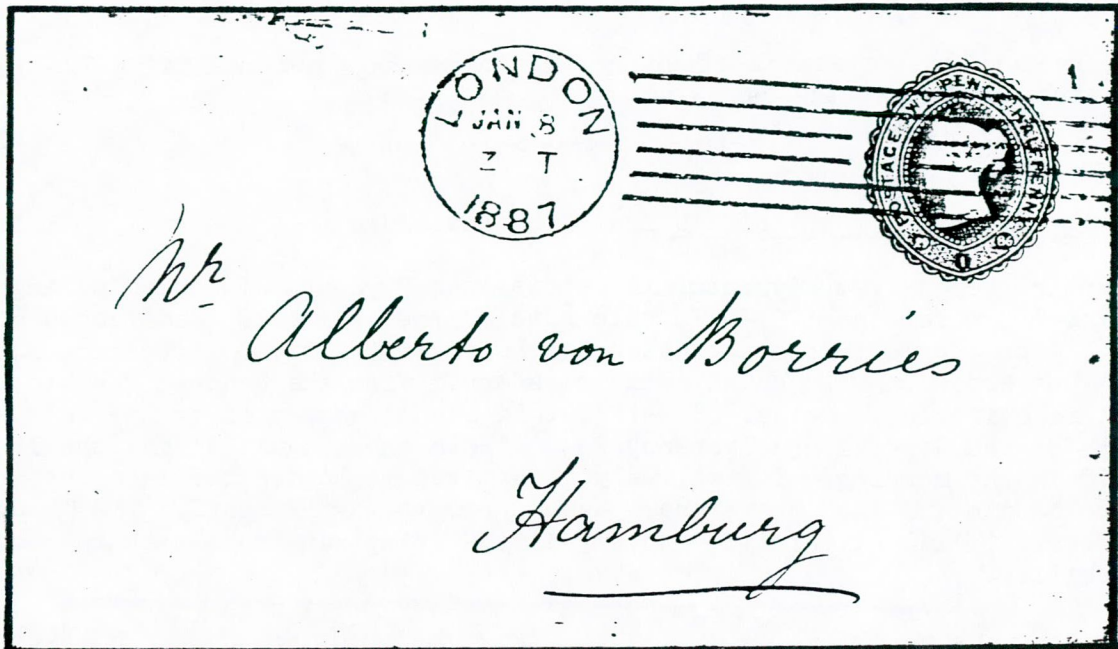 LONDON
JAN 8
3 T
1887
POSTAGE TWO PENCE HALFPENNY
Mr
Alberto von Borries
Hamburg